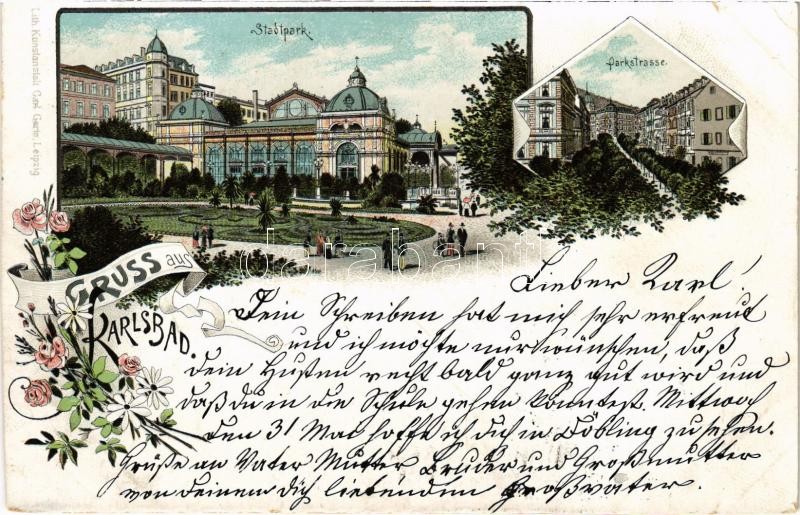 Stadtpark.
Parkstrasse.
Lith. Kunstanstalt Carl Garte, Leipzig
GRUSS aus
KARLSBAD.
darabanth
Lieber Karl!
Dein Schreiben hat mich sehr erfreut
und ich möchte nur wünschen, daß
dein Husten recht bald ganz gut wird und
daß du in die Schule gehen könntest. Mittwoch
den 31 Mai hoffe ich dich in Döbling zu sehen.
Grüße an Vater Mutter Bruder und Großmutter
von deinem dich liebenden Großvater.